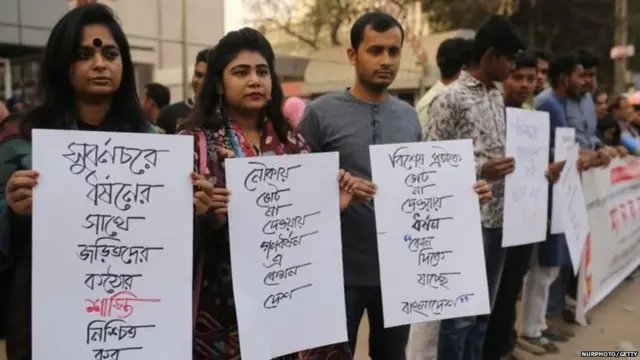 সুবর্নচরে
ধর্ষনের
সাথে
জড়িতদের
কঠোর
শাস্তি
নিশ্চিত
কর
নৌকায়
ভোট
না
দেওয়ায়
গণধর্ষন
এ
কেমন
দেশ
বিশেষ প্রতীকে
ভোট
না
দেওয়ায়
ধর্ষন
"কোন
দিকে
যাচ্ছে
বাংলাদেশ"
NURPHOTO/GETTY